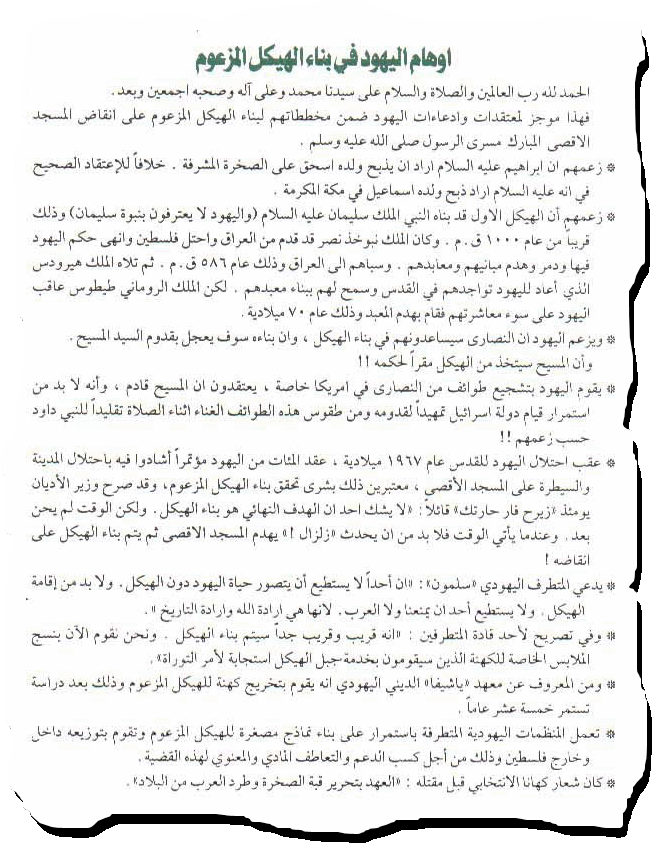 اوهام اليهود في بناء الهيكل المزعوم
الحمد لله رب العالمين والصلاة والسلام على سيدنا محمد وعلى آله وصحبه اجمعين وبعد.
فهذا موجز لمعتقدات وادعاءات اليهود ضمن مخططاتهم لبناء الهيكل المزعوم على انقاض المسجد
الاقصى المبارك مسرى الرسول صلى الله عليه وسلم .
* زعمهم ان ابراهيم عليه السلام اراد ان يذبح ولده اسحق على الصخرة المشرفة . خلافاً للإعتقاد الصحيح
في انه عليه السلام اراد ذبح ولده اسماعيل في مكة المكرمة .
* زعمهم أن الهيكل الاول قد بناه النبي الملك سليمان عليه السلام (واليهود لا يعترفون بنبوة سليمان) وذلك
قريباً من عام ١٠٠٠ ق.م . وكان الملك نبوخذ نصر قد قدم من العراق واحتل فلسطين وانهى حكم اليهود
فيها ودمر وهدم مبانيهم ومعابدهم . وسباهم الى العراق وذلك عام ٥٨٦ ق.م . ثم تلاه الملك هيرودس
الذي أعاد لليهود تواجدهم في القدس وسمح لهم ببناء معبدهم . لكن الملك الروماني طيطوس عاقب
اليهود على سوء معاشرتهم فقام بهدم المعبد وذلك عام ٧٠ ميلادية .
* ويزعم اليهود ان النصارى سيساعدونهم في بناء الهيكل ، وان بناءه سوف يعجل بقدوم السيد المسيح .
وأن المسيح سيتخذ من الهيكل مقراً لحكمه !!
* يقوم اليهود بتشجيع طوائف من النصارى في امريكا خاصة ، يعتقدون ان المسيح قادم ، وأنه لا بد من
استمرار قيام دولة اسرائيل تمهيداً لقدومه ومن طقوس هذه الطوائف الغناء اثناء الصلاة تقليداً للنبي داود
حسب زعمهم !!
* عقب احتلال اليهود للقدس عام ١٩٦٧ ميلادية ، عقد المئات من اليهود مؤتمراً أشادوا فيه باحتلال المدينة
والسيطرة على المسجد الأقصى ، معتبرين ذلك بشرى تحقق بناء الهيكل المزعوم، وقد صرح وزير الأديان
يومئذ «زيرح فار حارتك» قائلاً: «لا يشك احد ان الهدف النهائي هو بناء الهيكل. ولكن الوقت لم يحن
بعد. وعندما يأتي الوقت فلا بد من ان يحدث «زلزال !» يهدم المسجد الاقصى ثم يتم بناء الهيكل على
انقاضه !
* يدعي المتطرف اليهودي «سلمون»: «ان أحداً لا يستطيع أن يتصور حياة اليهود دون الهيكل. ولا بد من إقامة
الهيكل. ولا يستطيع أحد ان يمنعنا ولا العرب. لانها هي ارادة الله وارادة التاريخ».
* وفي تصريح لأحد قادة المتطرفين : «انه قريب وقريب جداً سيتم بناء الهيكل . ونحن نقوم الآن بنسج
الملابس الخاصة للكهنة الذين سيقومون بخدمة جبل الهيكل استجابة لأمر التوراة».
* ومن المعروف عن معهد «ياشيفا» الديني اليهودي انه يقوم بتخريج كهنة للهيكل المزعوم وذلك بعد دراسة
تستمر خمسة عشر عاماً .
* تعمل المنظمات اليهودية المتطرفة باستمرار على بناء نماذج مصغرة للهيكل المزعوم وتقوم بتوزيعه داخل
وخارج فلسطين وذلك من أجل كسب الدعم والتعاطف المادي والمعنوي لهذه القضية .
* كان شعار كهانا الانتخابي قبل مقتله : «العهد بتحرير قبة الصخرة وطرد العرب من البلاد».